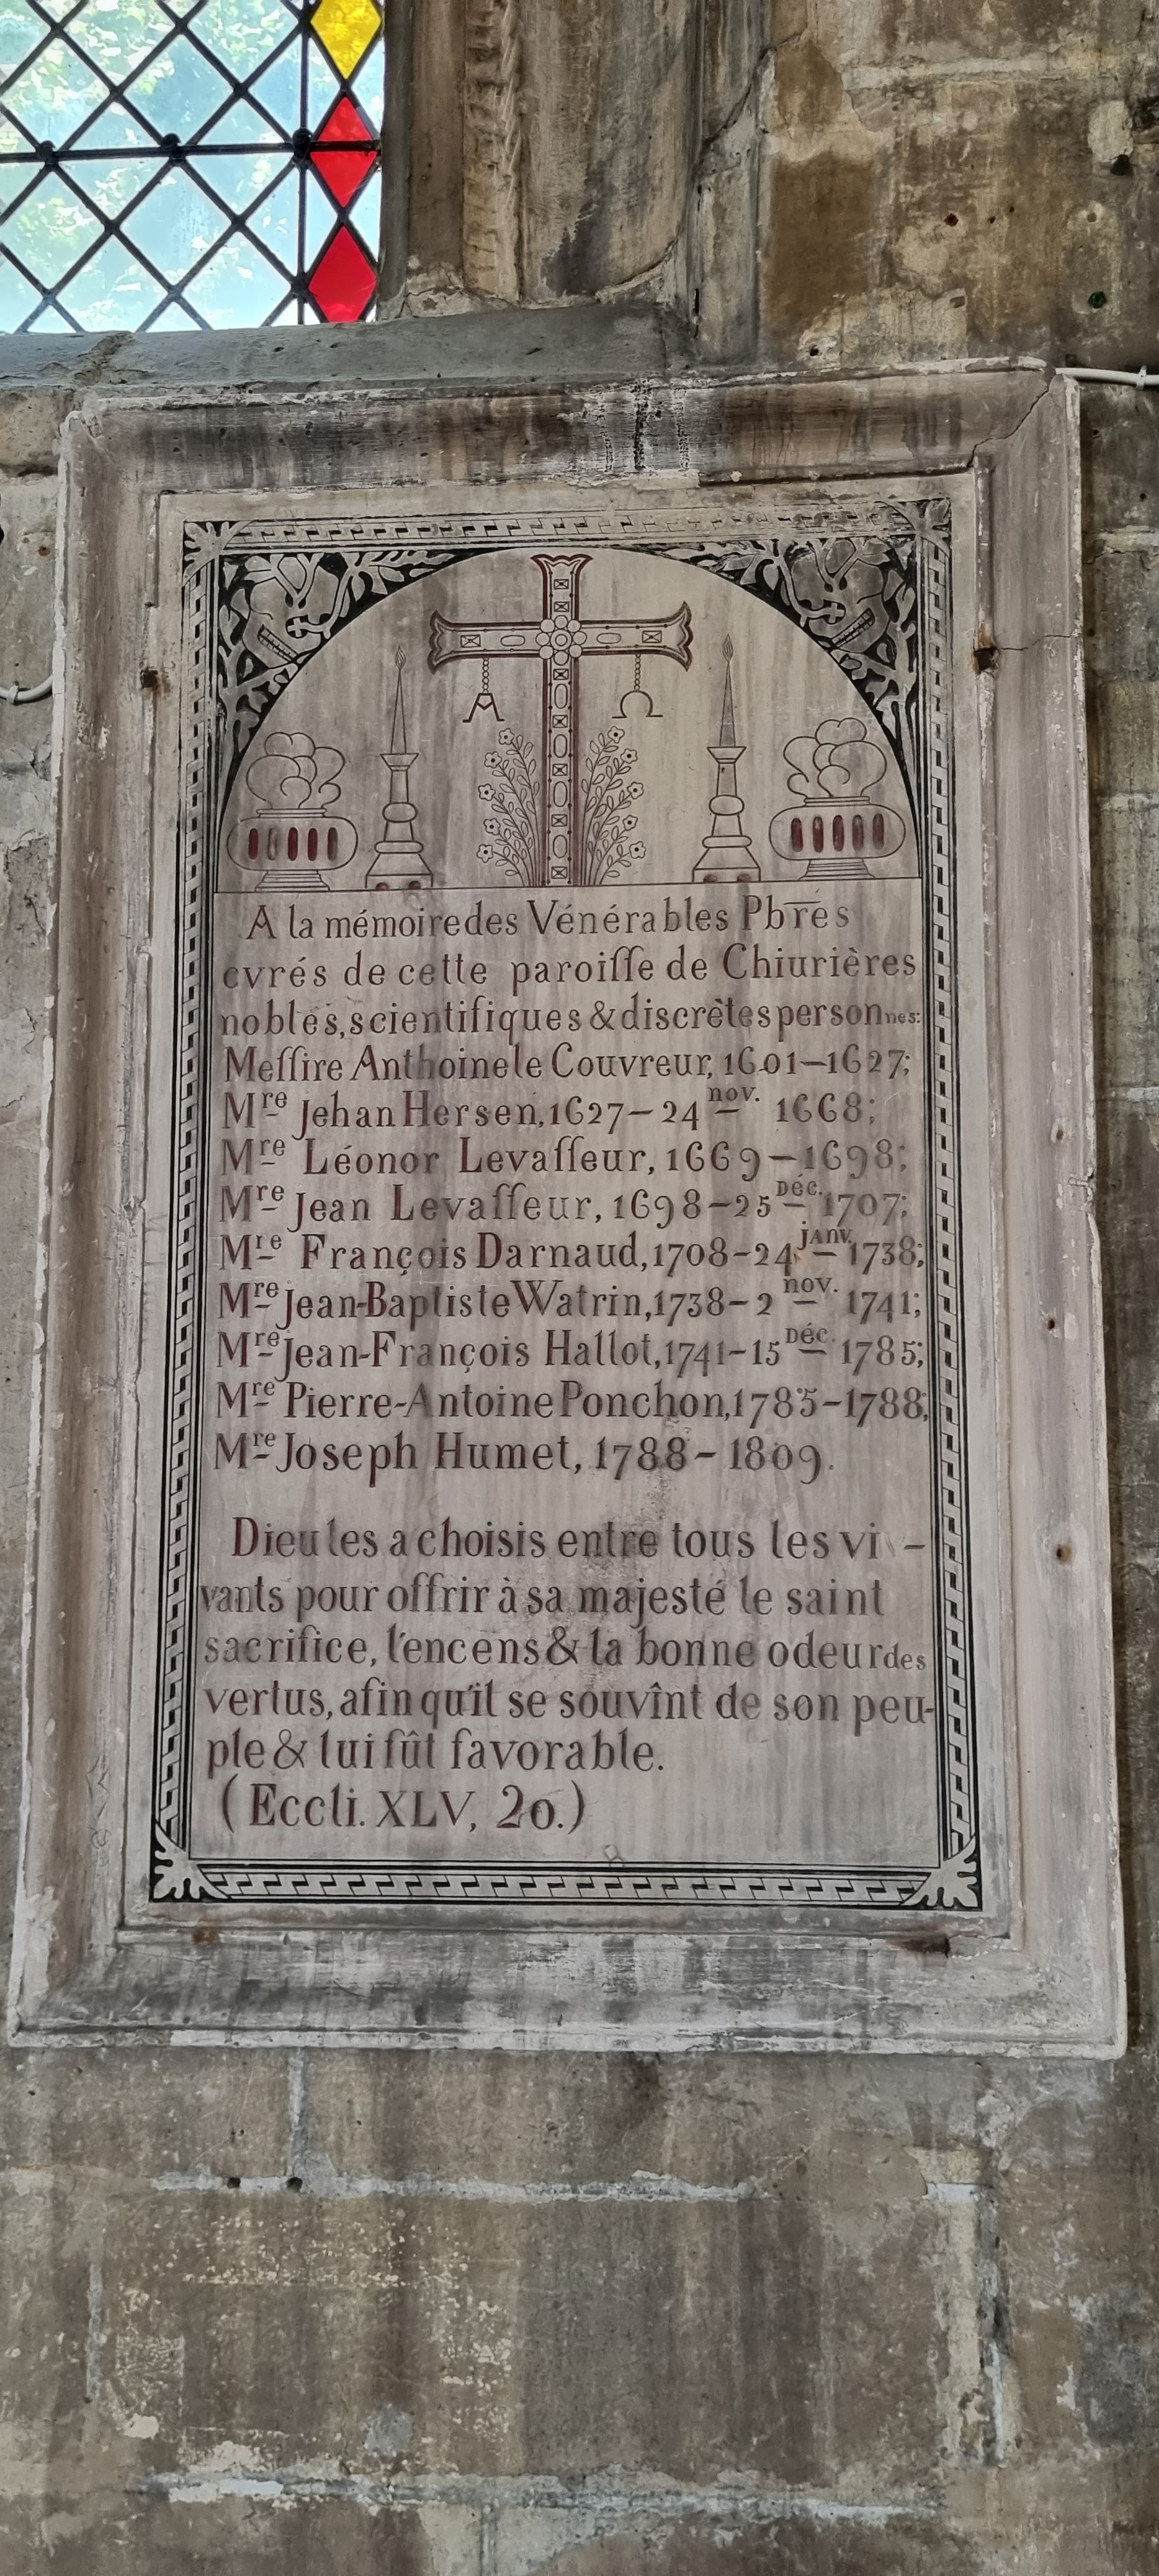 A Ω
A la mémoire des Vénérables Pbres
cvrés de cette paroiſſe de Chiurières
nobles, scientifiques & discrètes personnes:
Meſſire Anthoine le Couvreur, 1601–1627;
Mre Jehan Hersen, 1627–24 nov. 1668;
Mre Léonor Levaſſeur, 1669–1698;
Mre Jean Levaſſeur, 1698–25 Déc. 1707;
Mre François Darnaud, 1708–24 janv. 1738;
Mre Jean-Baptiste Watrin, 1738–2 nov. 1741;
Mre Jean-François Hallot, 1741–15 Déc. 1785;
Mre Pierre-Antoine Ponchon, 1785–1788;
Mre Joseph Humet, 1788–1809.
Dieu les a choisis entre tous les vi–
vants pour offrir à sa majesté le saint
sacrifice, l'encens & la bonne odeur des
vertus, afin qu'il se souvînt de son peu-
ple & lui fût favorable.
(Eccli. XLV, 20.)